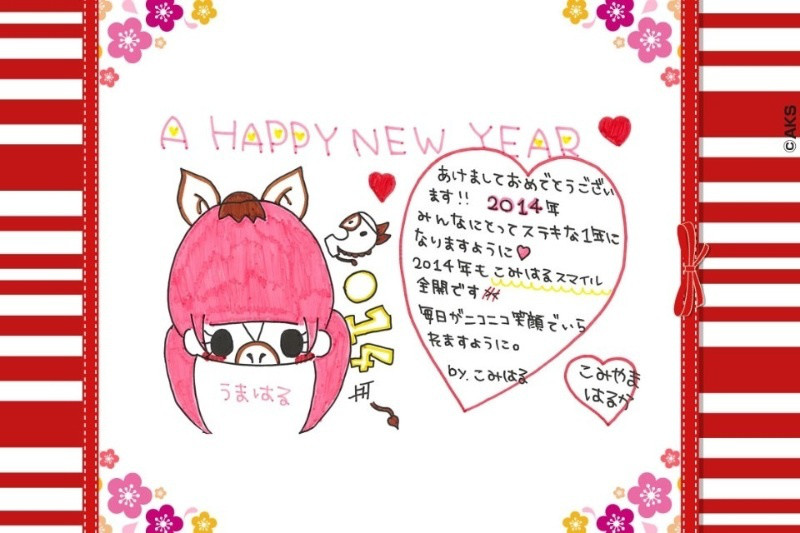 A HAPPY NEW YEAR
あけましておめでとうござい
ます!! 2014年
みんなにとってステキな1年に
なりますように♥
2014年も こみはるスマイル
全開です
毎日がニコニコ笑顔でいら
れますように。
by. こみはる
こみやま
はるか
うまはる
014
©AKS